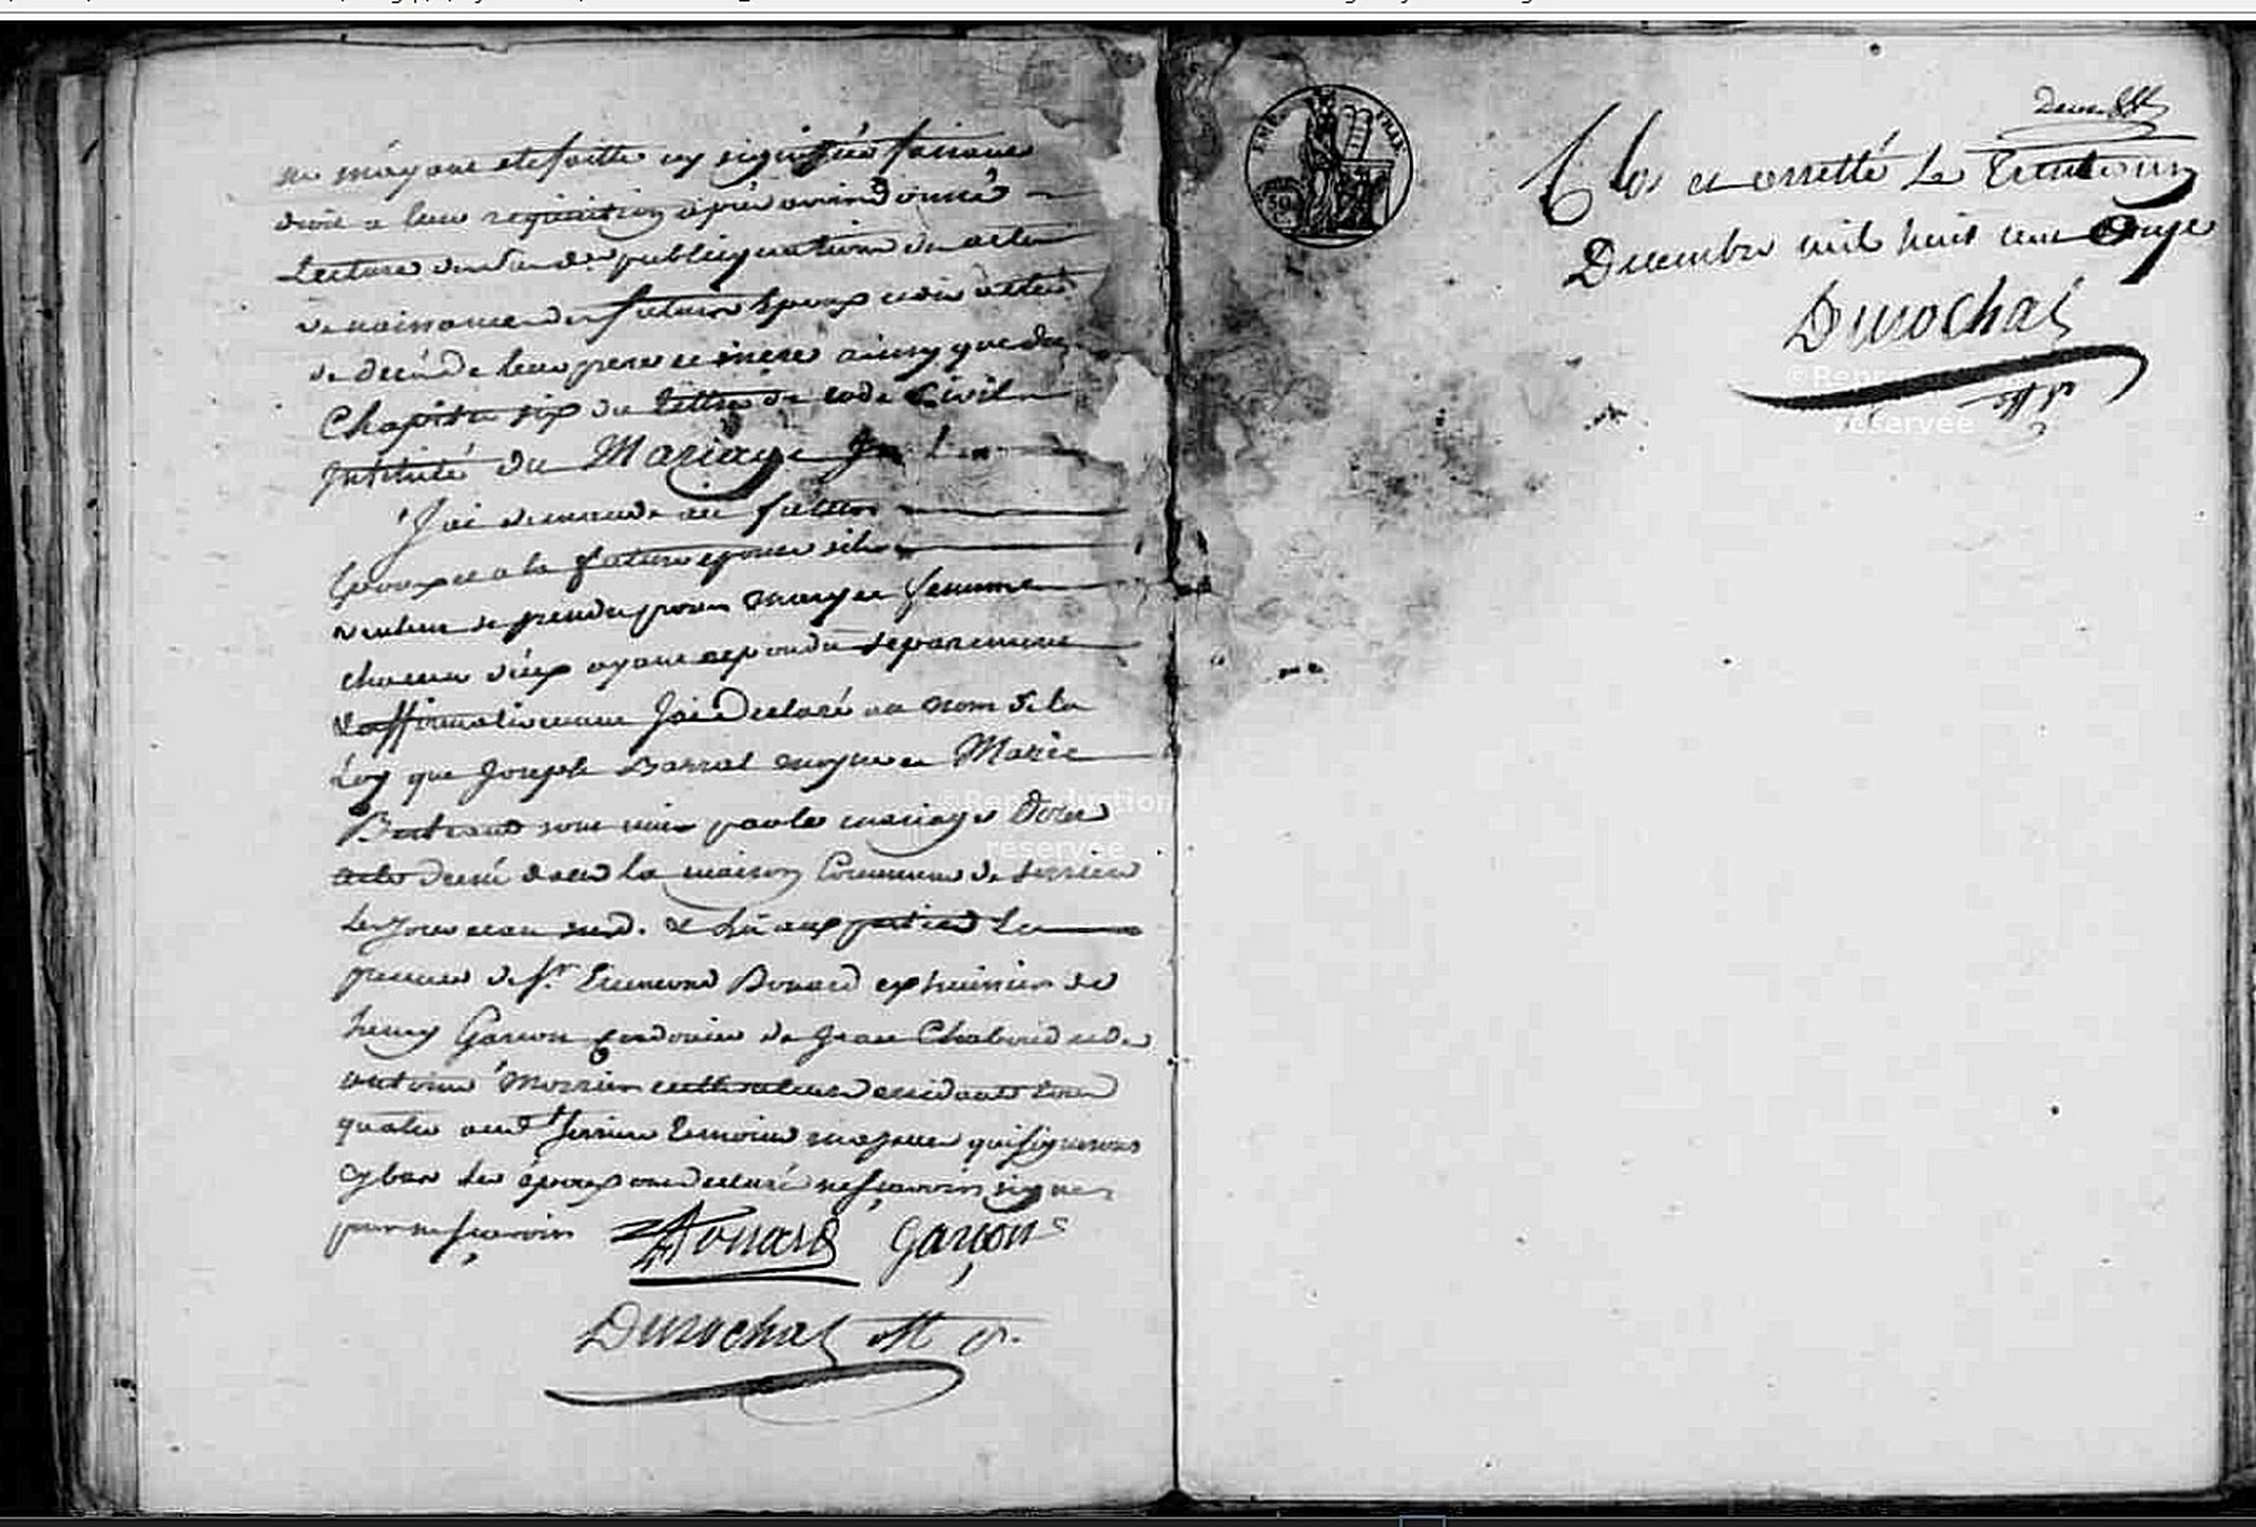 ne m'ayant ete faitte ny signiffiée faisant
droit a leur requisition apres avoir donné
Lecture des publiquations des actes
de naissance des futurs Epoux
de deces de leur pere et mere ainsy que du
Chapitre six du tittre du code Civil
Intitulé du Mariage
J'ai demandé au futur
Epoux et a la future epouse sils
veulent se prendre pour mary et femme
chacun d'eux ayant repondu separement
& affirmativement J'ai declaré au nom de la
Loy que Joseph Barral et Marie
Bertrand sont unis par le mariage
acte dressé dans la maison Commune de Serrieres
les jour et an susd. & lû aux parties En
presence de Sr. Bouard ex huissier de
henry Garcon Cordonier de Jean Chaboud et de
antoine cultivateurs residants tous
quatre aud. Serrieres temoins majeurs qui signeront
cy bas les époux ont declaré ne scavoir signer
pour ne scavoir Bouard Garçon
Durochat
EMP. FRAN.
50
Clos et arretté Le Trente un
Decembre mil huit cent onze
Durochat
©Reproduction
réservée
©Reproduction
réservée